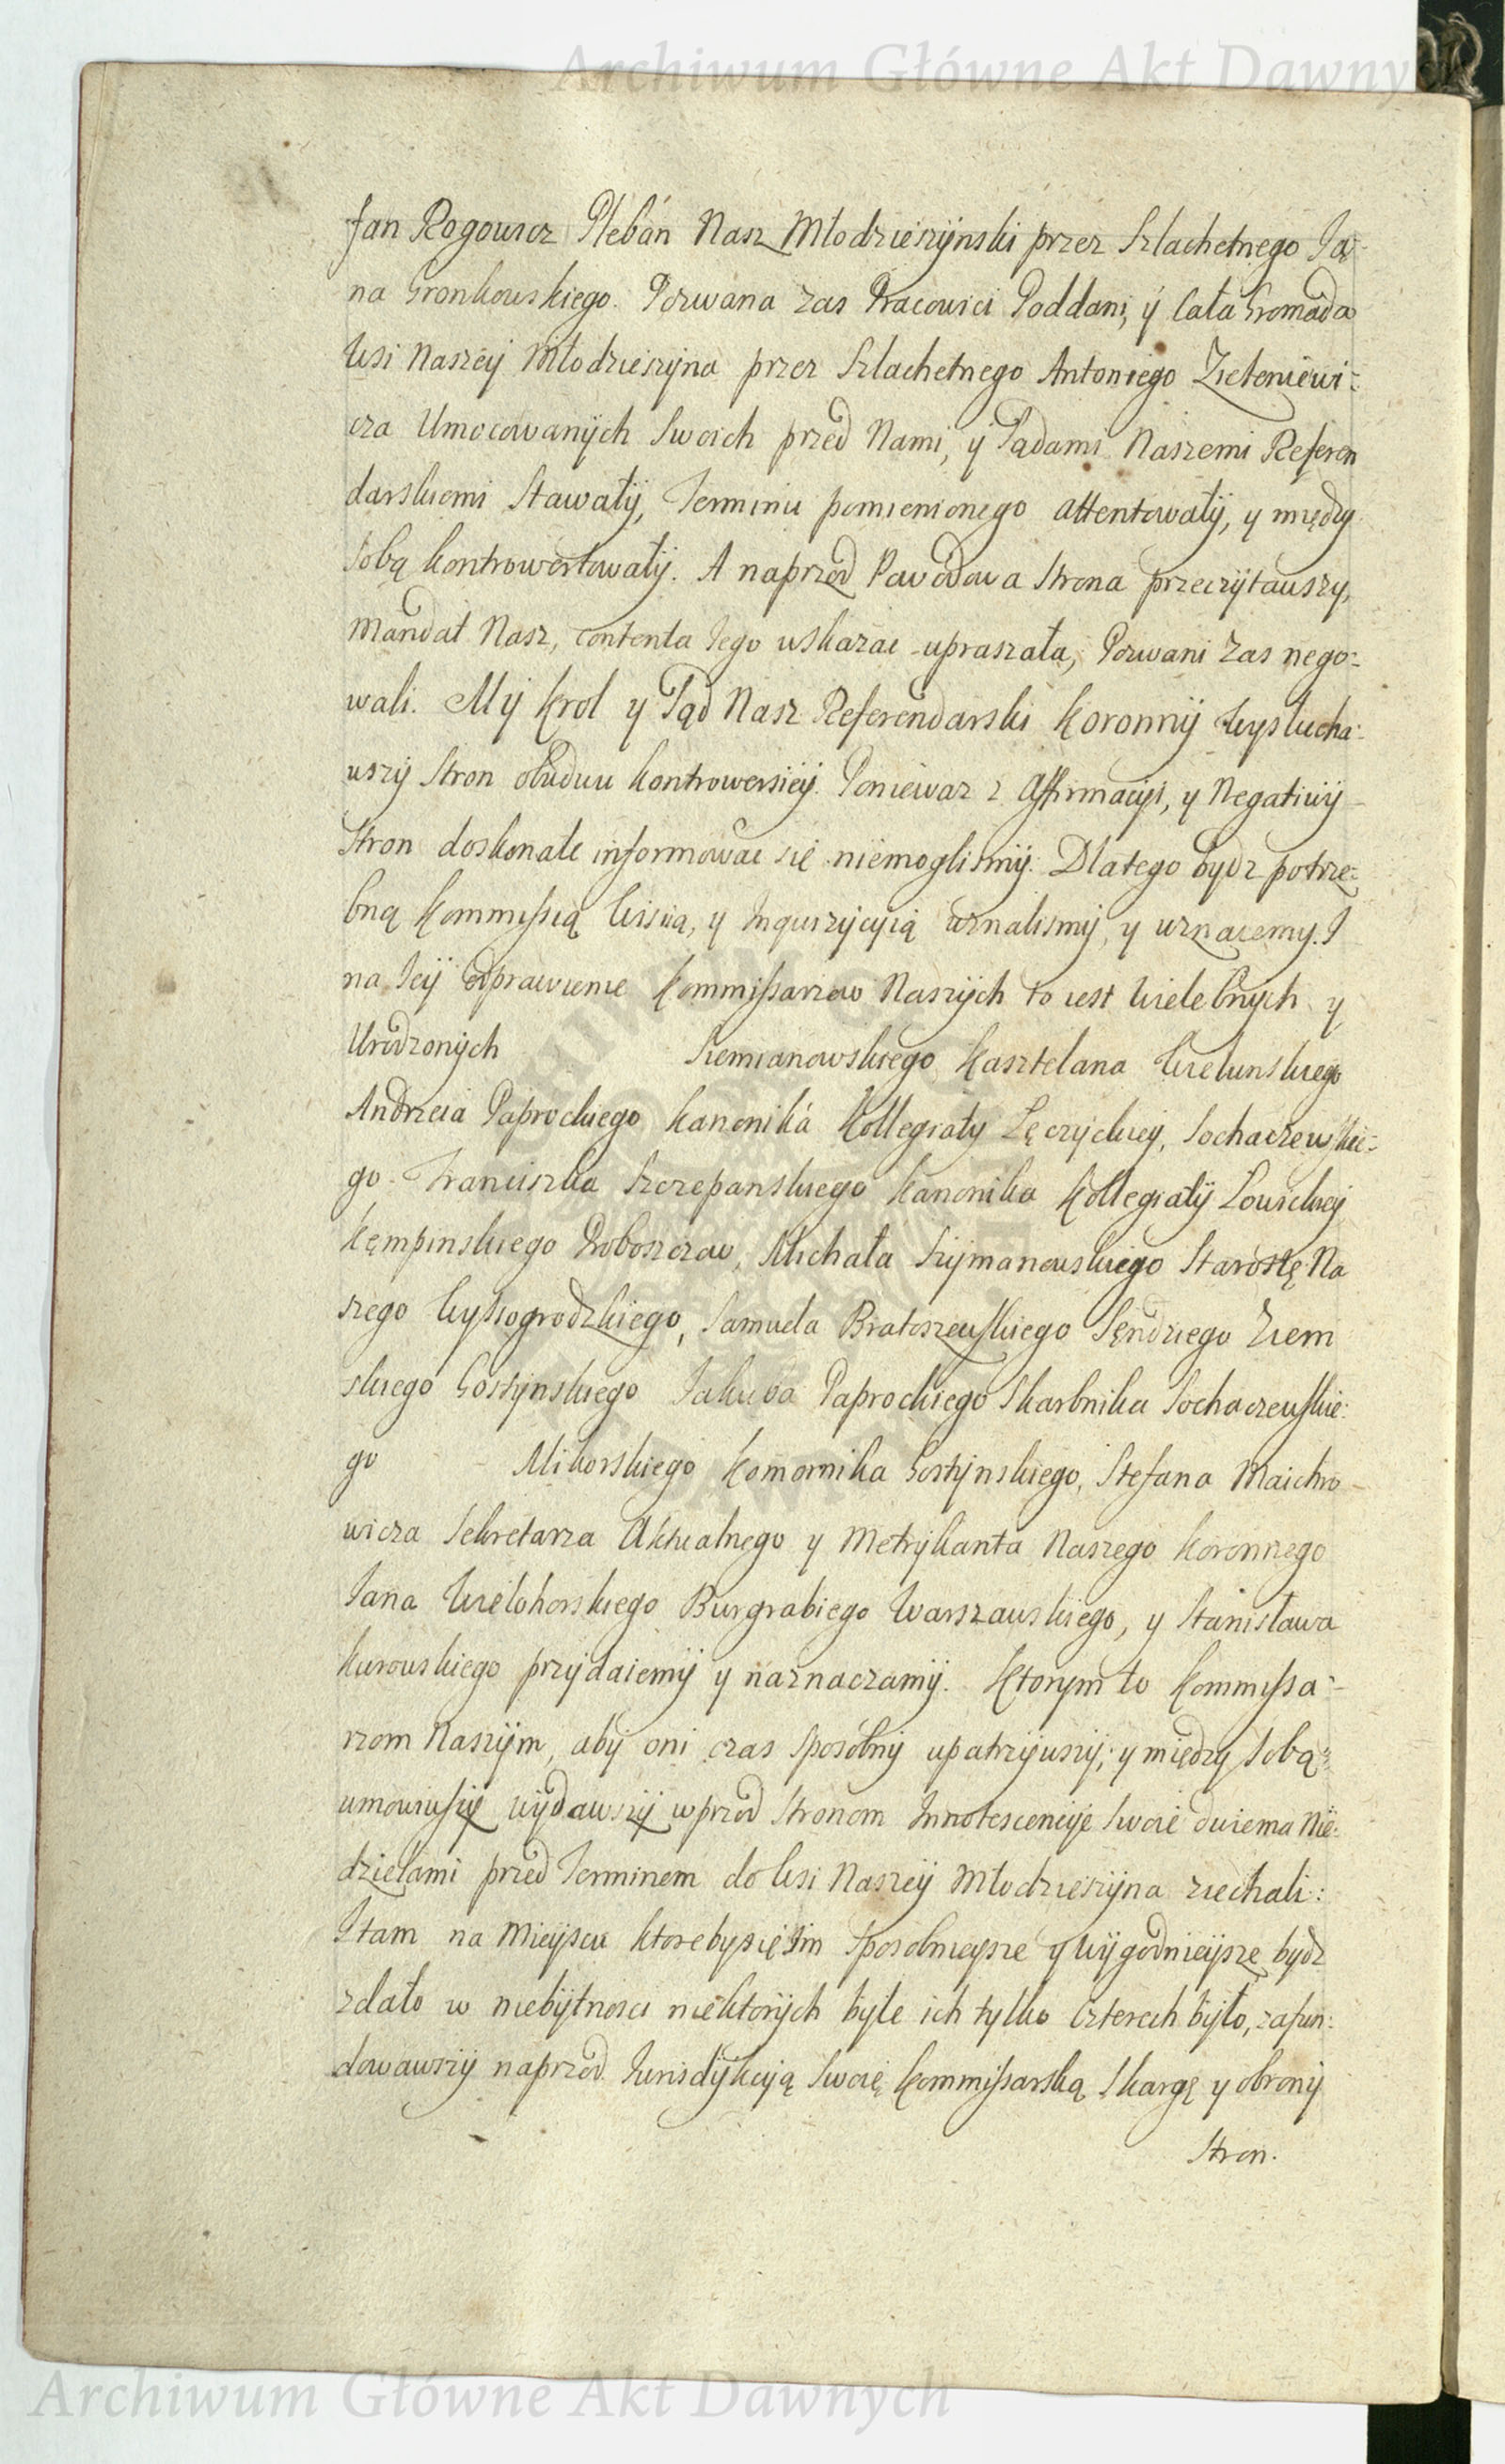 Archiwum Główne Akt Dawnych
Jan Rogowicz Pleban Nasz Młodzieszynski przez Szlachetnego Ja-
na Gronkowskiego. Pozwana zas Pracowici Poddani, y Cała Gromada
Wsi Naszey Młodzieszyna przez Szlachetnego Antoniego Zieleniewi:
cza Umocowanych Swoich przed Nami, y Sądami Naszemi Referen
darskiemi Stawały, Terminu pomienionego attentowały, y między
Sobą kontrowertowały. A naprzod Powodowa Strona przeczytawszy,
Mandat Nasz, contenta Jego wskazac upraszała, Pozwani zas nego:
wali. My Krol y Sąd Nasz Referendarski Koronny Wysłucha:
wszy Stron obudwu kontrowersiey. Poniewaz z Affirmacyi, y Negatiwy
Stron doskonale informowac się niemoglismy. Dlatego bydz potrze:
bną Kommissią Wisią, y Inquizycyią uznalismy, y uznaiemy. I
na Jey odprawienie Kommissarzow Naszych to iest Wielebnych y
Urodzonych Siemianowskiego Kasztelana Wielunskiego
Andrzeia Paprockiego Kanonika Kollegiaty Łęczyckiey, Sochaczewskie:
go. Franciszka Szczepanskiego Kanonika Kollegiaty Łowickiey
Kempinskiego Proboszczow, Michała Szymanowskiego Starostę Na
szego Wyszogrodzkiego, Samuela Bratoszewskiego Sędziego Ziem
skiego Gostynskiego Jakuba Paprockiego Skarbnika Sochaczewskie:
go Mikorskiego Komornika Gostynskiego, Stefana Maichro-
wicza Sekretarza Aktualnego y Metrykanta Naszego Koronnego
Jana Wielohorskiego Burgrabiego Warszawskiego, y Stanisława
Kurowskiego przydaiemy y naznaczamy. Ktorym to Kommissa:
rzom Naszym, aby oni czas Sposobny upatrzywszy, y między Sobą
umowiwszy wydawszy wprzod Stronom Innotescencye Swoie dwiema Nie:
dzielami przed Terminem do Wsi Naszey Młodzieszyna ziechali:
I tam na Mieyscu ktoreby się Im Sposobnieysze y Wygodnieysze bydz
zdało w niebytnosci niektorych byle ich tylko Czterech było, zafun:
dowawszy naprzod Jurisdykcyą Swoię Kommissarską Skargę y obrony
Stron.
Archiwum Główne Akt Dawnych